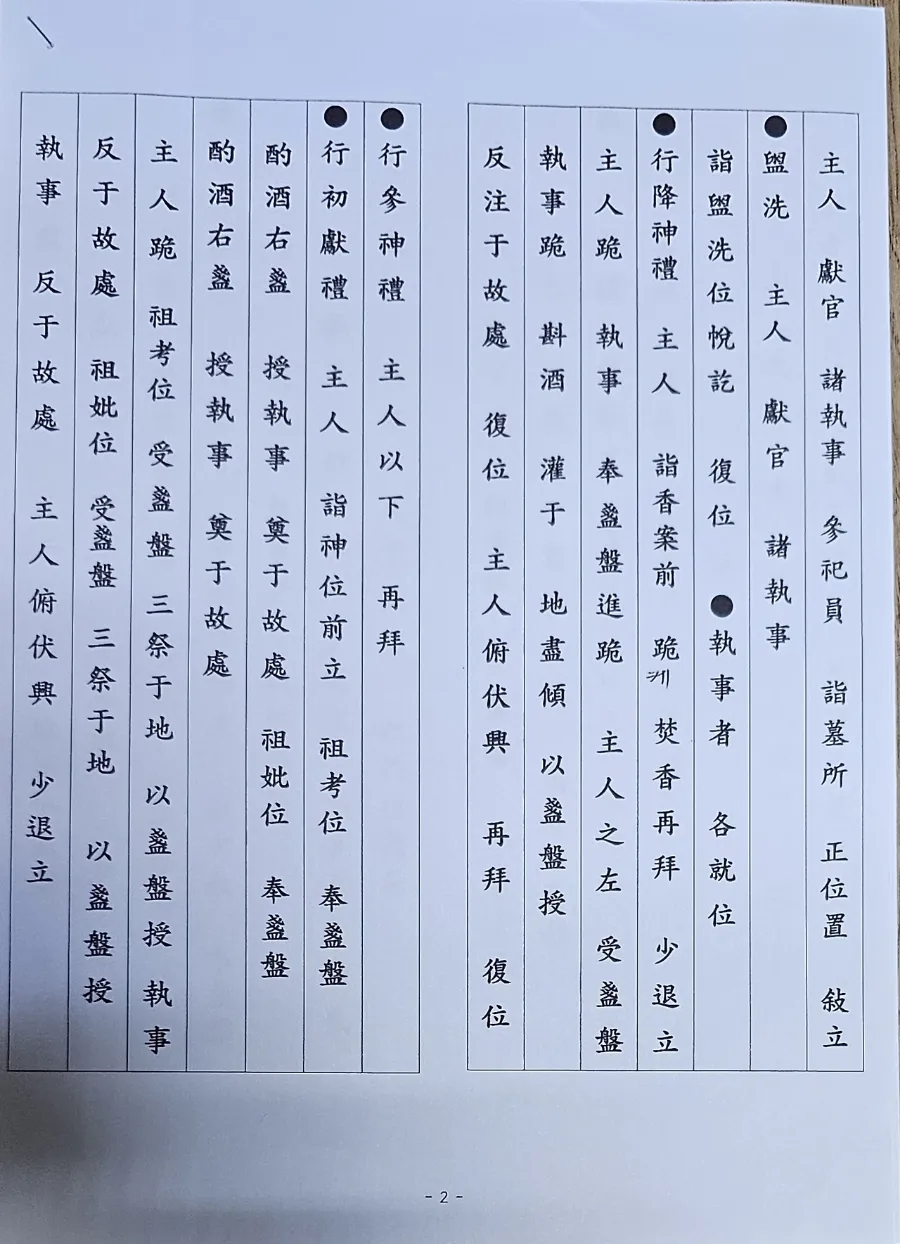 主人 獻官 諸執事 參祀員 詣墓所 正位置 敍立
●盥洗 主人 獻官 諸執事
詣盥洗位帨訖 復位 ●執事者 各就位
●行降神禮 主人 詣香案前 跪 焚香再拜 少退立
主人跪 執事 奉盞盤進跪 主人之左 受盞盤
執事跪 斟酒 灌于 地盡傾 以盞盤授
反注于故處 復位 主人俯伏興 再拜 復位
●行參神禮 主人以下 再拜
●行初獻禮 主人 詣神位前立 祖考位 奉盞盤
酌酒右盞 授執事 奠于故處 祖妣位 奉盞盤
酌酒右盞 授執事 奠于故處
主人跪 祖考位 受盞盤 三祭于地 以盞盤授 執事
反于故處 祖妣位 受盞盤 三祭于地 以盞盤授
執事 反于故處 主人俯伏興 少退立
- 2 -